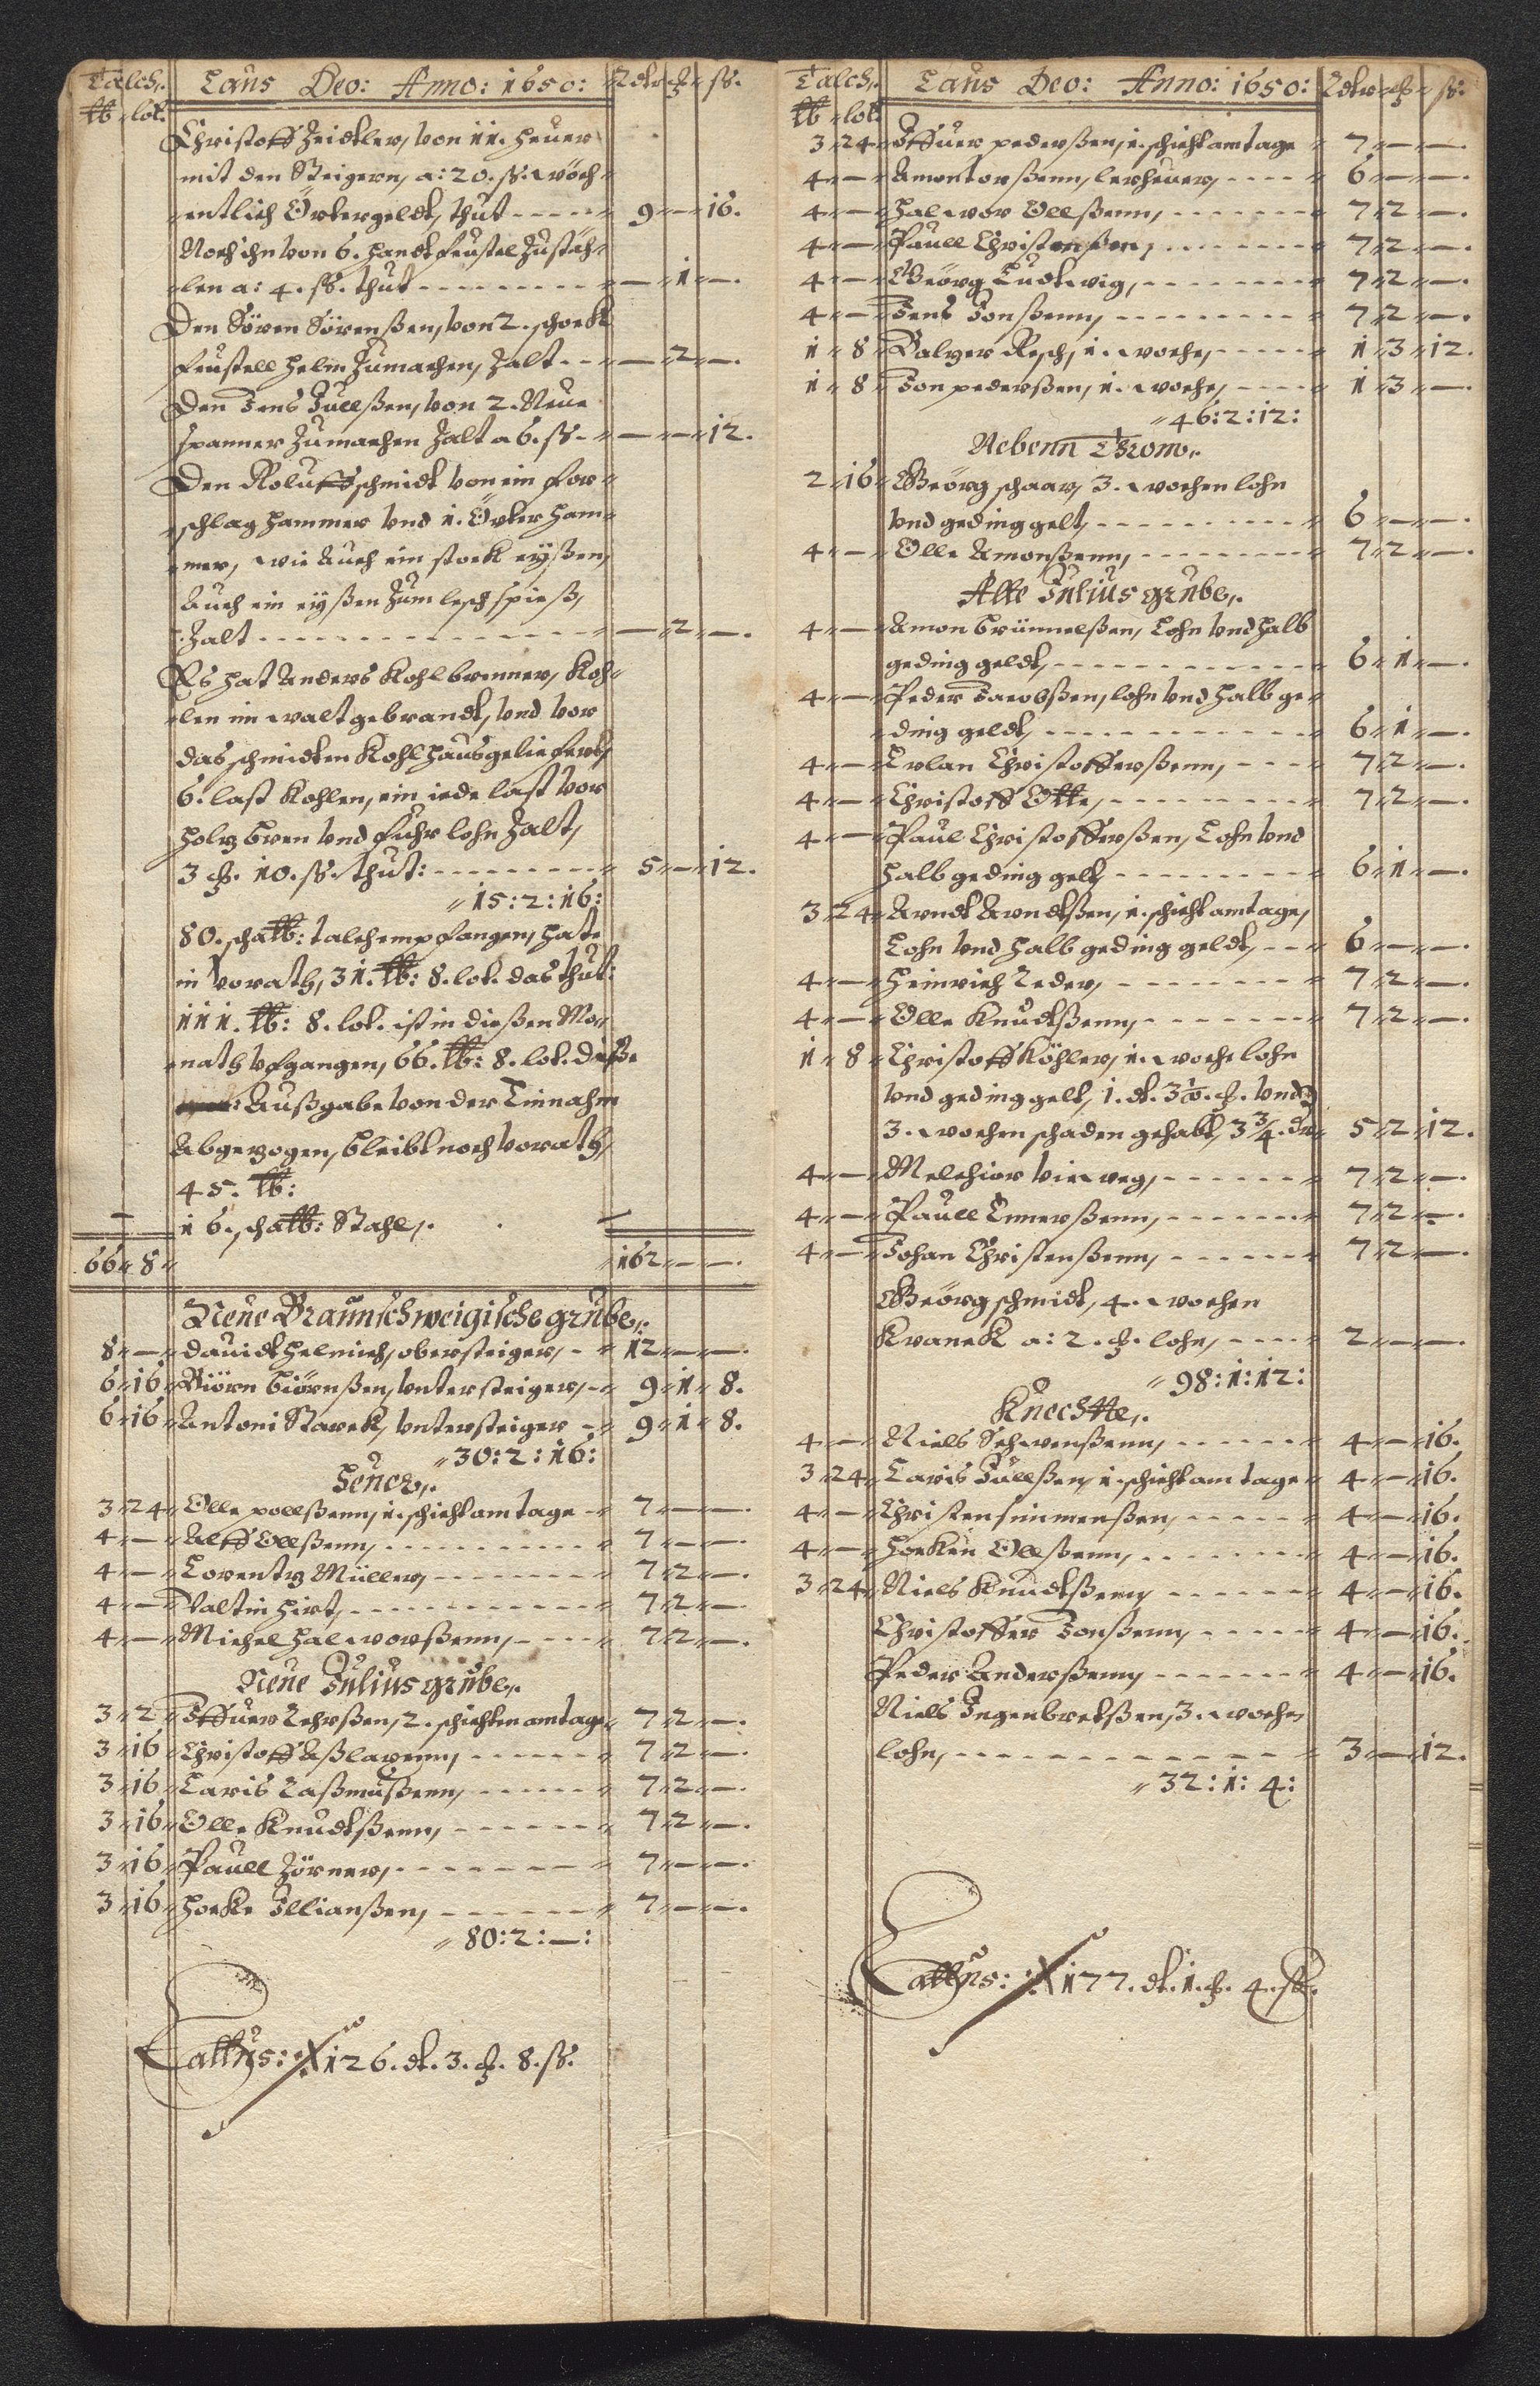 Talch. Laus Deo: Anno: 1650: Rdlr ß.
℔ lot.
Christoff Zeidtler, von 11. heuer
mit den Steigern, a: 20. ß. wöch=
entlich Örtergeldt, thut - - - - - 9 — 16.
Noch ihn von 6. handt feustel zustäh=
len a: 4. ß. thut - - - - - - - - - — 1 —.
Den Sören Sörenßen, von 2. schock
feustell helm zumachen, zalt - - - — 2 —.
Den Jens Juelßen, von 2. Neue
spanner zumachen zalt a 6. ß. — — 12.
Den Roluff schmidt von ein for=
schlag hammer vnd 1. Örter ham=
mer, wie auch ein stock eyßen,
auch ein eyßen zum lesch spieß,
zalt - - - - - - - - - - - - - - — 2 —.
Es hat Anders Kohlbrenner, Koh=
len im walt gebrandt, vnd vor
das schmidten Kohlhaus geliefert,
6. last Kohlen, ein iede last vor
holz bren vnd fuhr lohn zalt,
3 10. ß. thut: - - - - - - - - - 5 — 12.
15:2:16:
80. scha℔: talch empfangen, hate
in vorath, 31. ℔: 8. lot. das thut:
111. ℔: 8. lot. ist in dießen Mo=
nath vfgangen, 66. ℔: 8. lot. dieße
Außgabe von der Einnahm
abgezogen, bleibt noch vorath,
45. ℔:
16. scha℔: Stahl.
66 8 162 — —.
Neue Braunschweigische grube.
8 — Dauidt Helmich, obersteiger, - 12 — —.
6 16 Biörn Biörnßen, vntersteiger, - 9 1 8.
6 16 Antoni Starck, vntersteiger - 9 1 8.
30:2:16:
Heuer.
3 24 Olle pollßenn, 1. schicht am tage - 7 — —.
4 — Alff Ollßenn, - - - - - - - 7 — —.
4 — Lorentz Müller, - - - - - - 7 2 —.
4 — Valtin Hirt, - - - - - - - - 7 2 —.
4 — Michel Halworßenn, - - - - 7 2 —.
Neue Julius grube.
3 2 Iffuer Lehrßen, 2. schichten am tage 7 2 —.
3 16 Christoff Aßlagenn, - - - - - 7 2 —.
3 16 Laris Laßmußenn, - - - - - 7 2 —.
3 16 Olle Knudtßenn, - - - - - - 7 2 —.
3 16 Paull Zörner, - - - - - - - 7 — —.
3 16 Hocke Illianßen, - - - - - - 7 — —.
80:2:—:
Lattus: 126. dl. 3. 8. ß.
Talch. Laus Deo: Anno: 1650: Rdlr ß.
℔ lot
3 24 Iffuer pederßen, 1. schicht am tage 7 — —.
4 — Amontorßenn, lerheuer, - - - - 6 — —.
4 — Halwor Ollßenn, - - - - - - - 7 2 —.
4 — Paull Christenßen, - - - - - - 7 2 —.
4 — Geörg Ludtwig, - - - - - - - 7 2 —.
4 — Jens Jonßenn, - - - - - - - - 7 2 —.
1 8 Balzer Resch, 1. woche, - - - - 1 3 12.
1 8 Jon pederßen, 1. woche, - - - - 1 3 —.
46:2:12:
Nebenn Throm.
2 16 Geörg schaar, 3. wochen lohn
vnd geding gelt, - - - - - - - - 6 — —.
4 — Olle Amonßenn, - - - - - - - 7 2 —.
Alte Julius grube.
4 — Amon Brünnelßen, Lohn vnd halb
geding geldt, - - - - - - - - - 6 1 —.
4 — Peder Jacobßen, lohn vnd halb ge=
ding geldt, - - - - - - - - - - 6 1 —.
4 — Erlan Christofferßenn, - - - 7 2 —.
4 — Christoff Otte, - - - - - - - 7 2 —.
4 — Paul Christofferßen, Lohn vnd
halb geding gelt, - - - - - - - 6 1 —.
3 24 Arndt Arndtßen, 1. schicht am tage,
Lohn vnd halb geding geldt, - - - 6 — —.
4 — Heinrich Leder, - - - - - - - 7 2 —.
4 — Olle Knudtßenn, - - - - - - - 7 2 —.
1 8 Christoff Köhler, 1. woche lohn
vnd geding gelt, 1. dl. 3 vnd
3. wochen schaden gehabt, 3 3/4. dr 5 2 12.
4 — Melchior vieweg, - - - - - - 7 2 —.
4 — Paull Ennerßenn, - - - - - - 7 2 —.
4 — Johan Christenßenn, - - - - - 7 2 —.
Geörg schmidt, 4. wochen
Kranck a: 2. lohn, - - - - 2 — —.
98:1:12:
Knechtte.
4 — Niels Schwenßenn, - - - - - 4 — 16.
3 24 Laris Juelßen, 1. schicht am tage 4 — 16.
4 — Christen simmenßen, - - - - 4 — 16.
4 — Hocken Ollßenn, - - - - - - 4 — 16.
3 24 Niels Knudtßenn, - - - - - 4 — 16.
Christoffer Jonßenn, - - - - - 4 — 16.
Peder Anderßenn, - - - - - - - 4 — 16.
Niels Ingenbretßen, 3. woche
lohn, - - - - - - - - - - - - - 3 — 12.
32:1:4:
Lattus: 177. dl. 1. 4. ß.